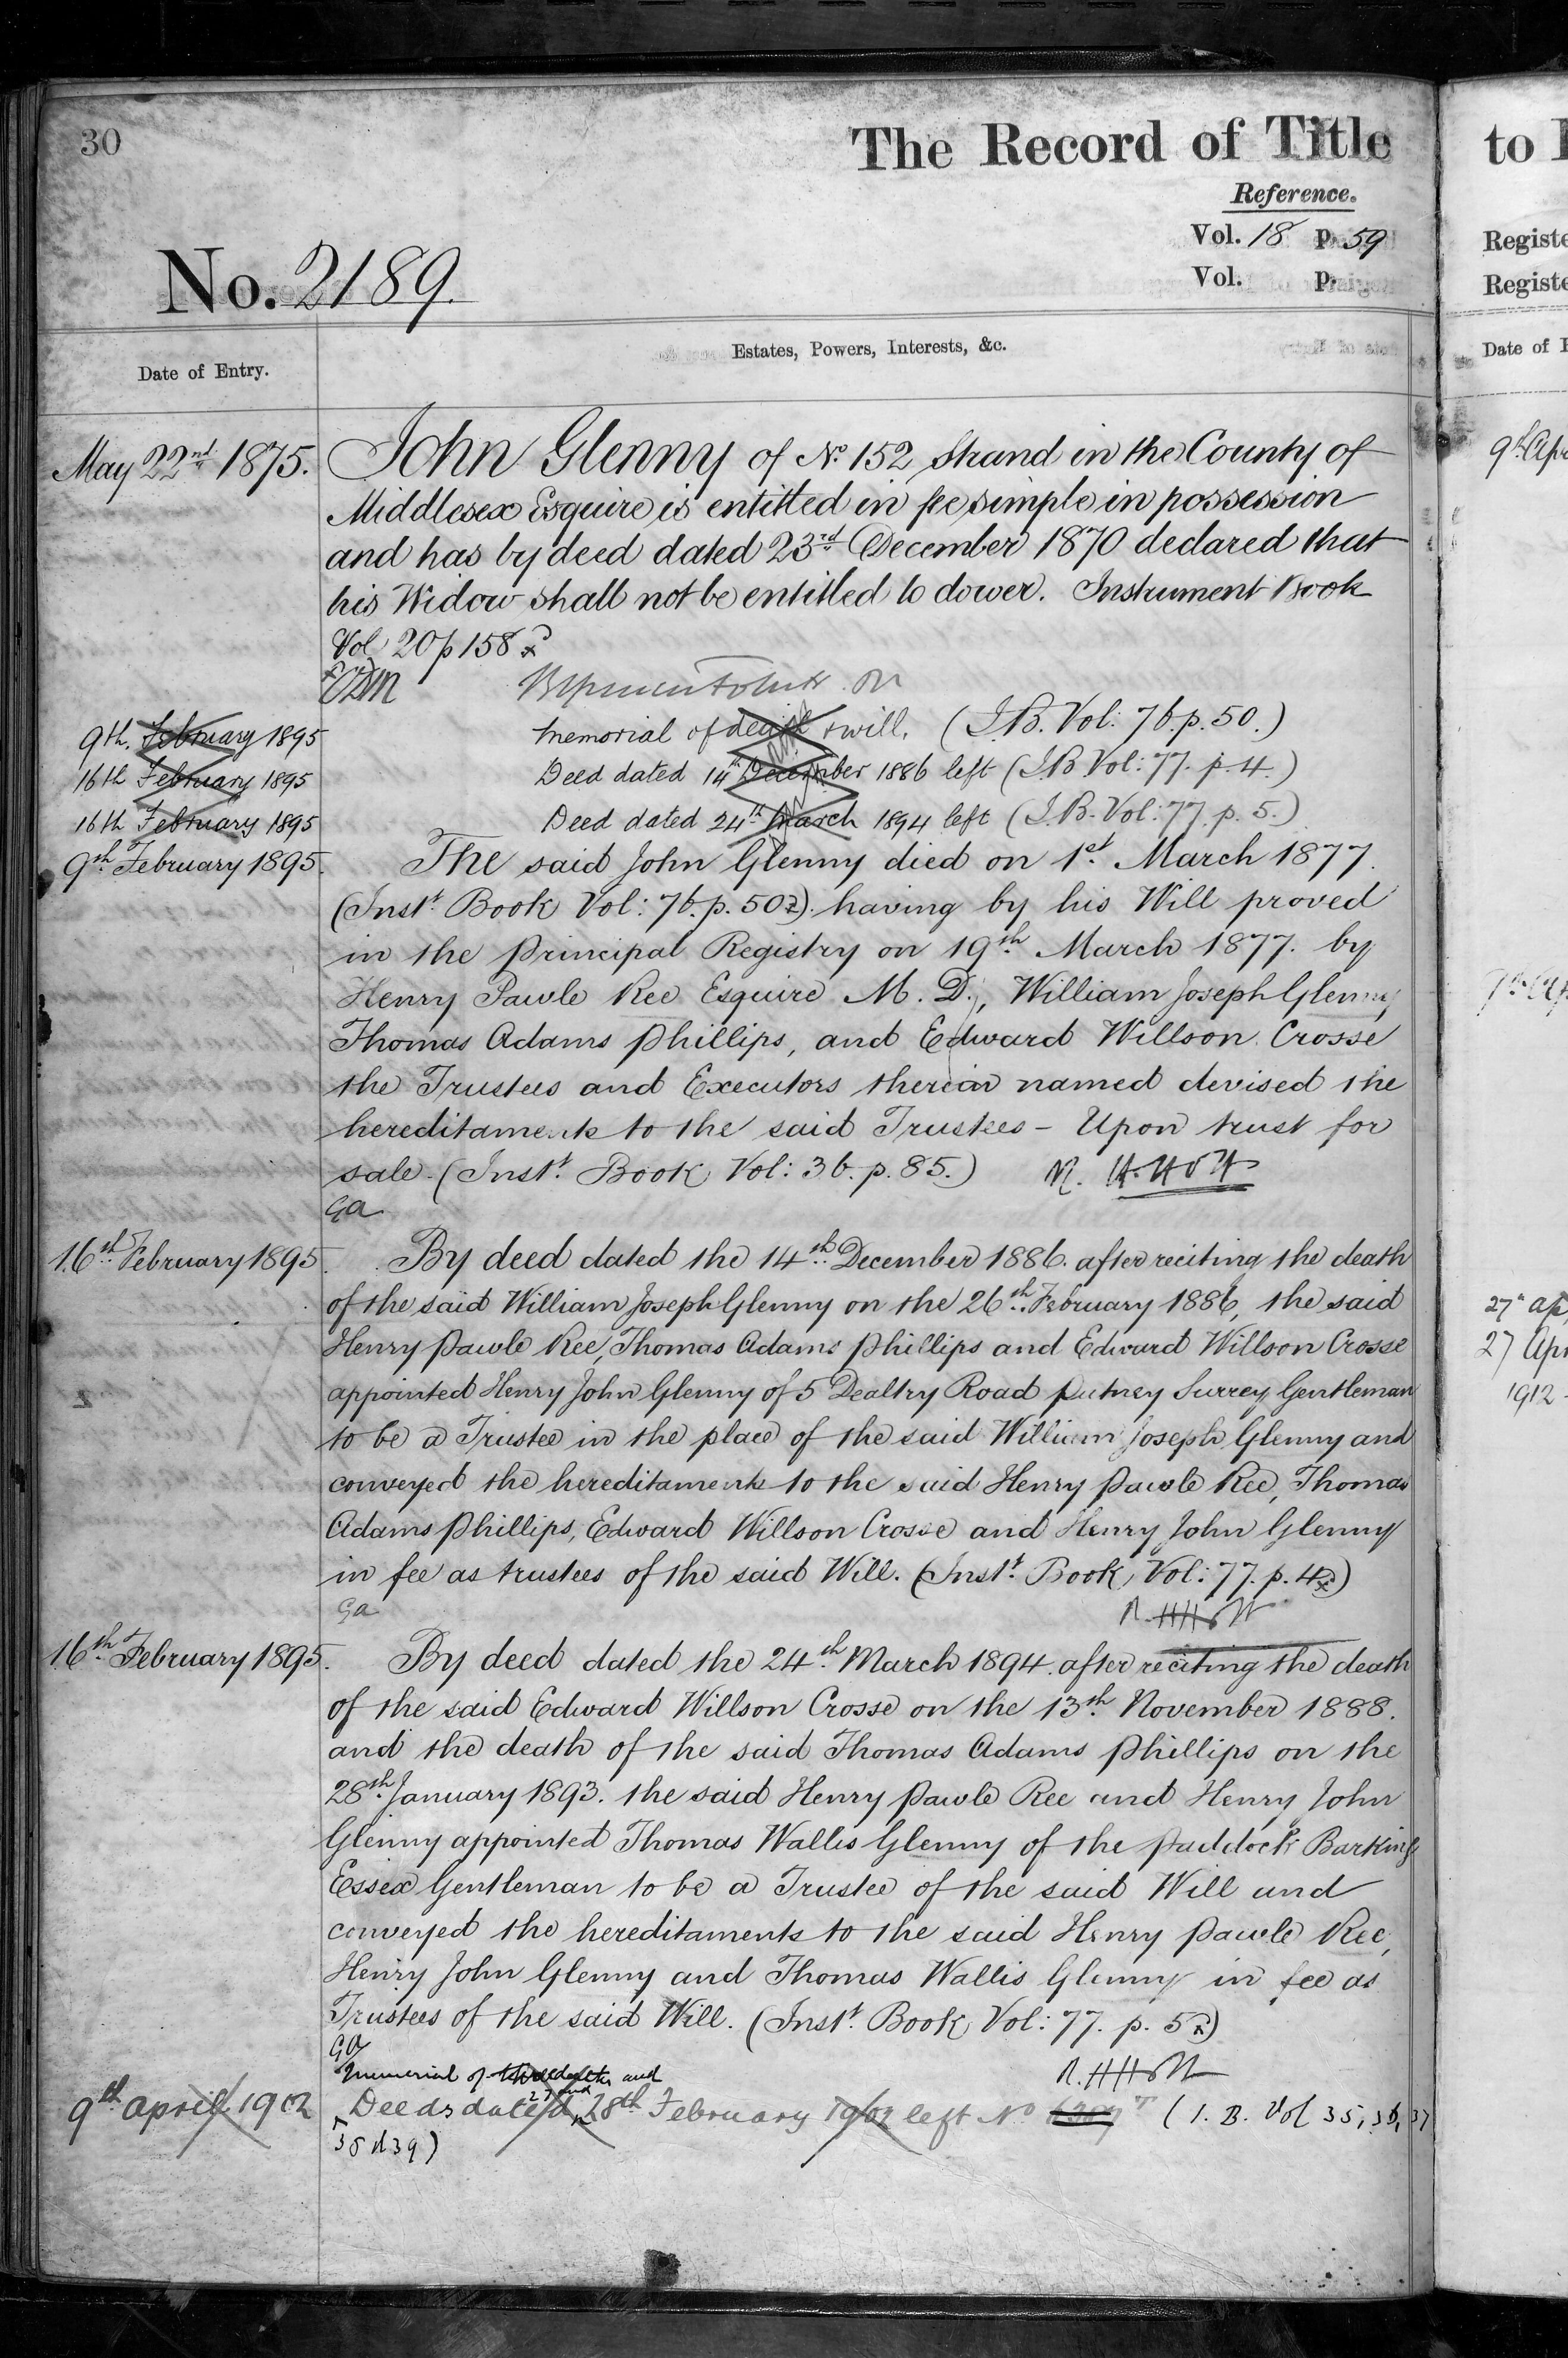 30
The Record of Title
Reference.
Vol. 18 p. 59
Vol. p.
No. 2189.
Date of Entry.
Estates, Powers, Interests, &c.
May 22nd 1875.
John Glenny of No. 152 Strand in the County of
Middlesex Esquire is entitled in fee simple in possession
and has by deed dated 23rd December 1870 declared that
his Widow shall not be entitled to dower. Instrument Book
Vol 20 p 158
9th. February 1895 memorial of death & will. (I.B. Vol: 76. p. 50.)
16th February 1895 Deed dated 14th December 1886 left (I.B Vol: 77. p. 4.)
16th February 1895 Deed dated 24th March 1894 left (I.B. Vol: 77. p. 5.)
9th February 1895. The said John Glenny died on 1st March 1877.
(Inst. Book Vol: 76. p. 50) having by his Will proved
in the Principal Registry on 19th March 1877. by
Henry Pawle Ree Esquire M. D., William Joseph Glenny,
Thomas Adams Phillips, and Edward Willson Crosse
the Trustees and Executors therein named devised the
hereditaments to the said Trustees – Upon trust for
sale. (Inst. Book Vol: 36. p. 85.)
GA
16th February 1895. By deed dated the 14th December 1886. after reciting the death
of the said William Joseph Glenny on the 26th February 1886, the said
Henry Pawle Ree, Thomas Adams Phillips and Edward Willson Crosse
appointed Henry John Glenny of 5 Dealtry Road Putney Surrey Gentleman
to be a Trustee in the place of the said William Joseph Glenny and
conveyed the hereditaments to the said Henry Pawle Ree, Thomas
Adams Phillips, Edward Willson Crosse and Henry John Glenny
in fee as trustees of the said Will. (Inst. Book Vol: 77. p. 4)
GA
16th February 1895. By deed dated the 24th March 1894. after reciting the death
of the said Edward Willson Crosse on the 13th November 1888.
and the death of the said Thomas Adams Phillips on the
28th January 1893. the said Henry Pawle Ree and Henry John
Glenny appointed Thomas Wallis Glenny of the Paddock Barking
Essex Gentleman to be a Trustee of the said Will and
conveyed the hereditaments to the said Henry Pawle Ree,
Henry John Glenny and Thomas Wallis Glenny in fee as
Trustees of the said Will. (Inst. Book Vol: 77. p. 5)
GA
Memorial of and
27 and
9th April 1902 Deeds dated 28th February 1902 left No (I. B. Vol 35, 36, 37
39)
to
Registe
Registe
Date of
9th Apr
27 Apr
27 Apr
1912